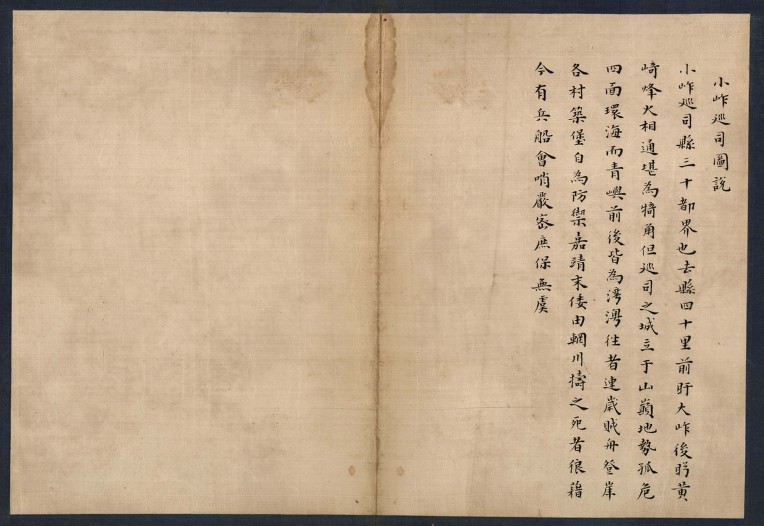 小岞廵司圖說
小岞廵司縣三十都界也去縣四十里前盱大岞後盻黃
崎烽火相通堪為犄角但廵司之城立于山巔地勢孤危
四面環海而青嶼前後皆為灣澚往者連歲賊舟登岸
各村築堡自為防禦嘉靖末倭由輞川擣之死者狼藉
今有兵船會哨嚴密庶保無虞